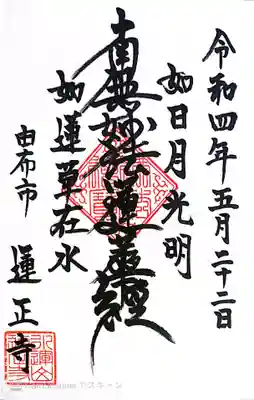 令和四年五月二十二日
如日月光明
南無妙法蓮華經
如蓮華在水
由布市
蓮正寺